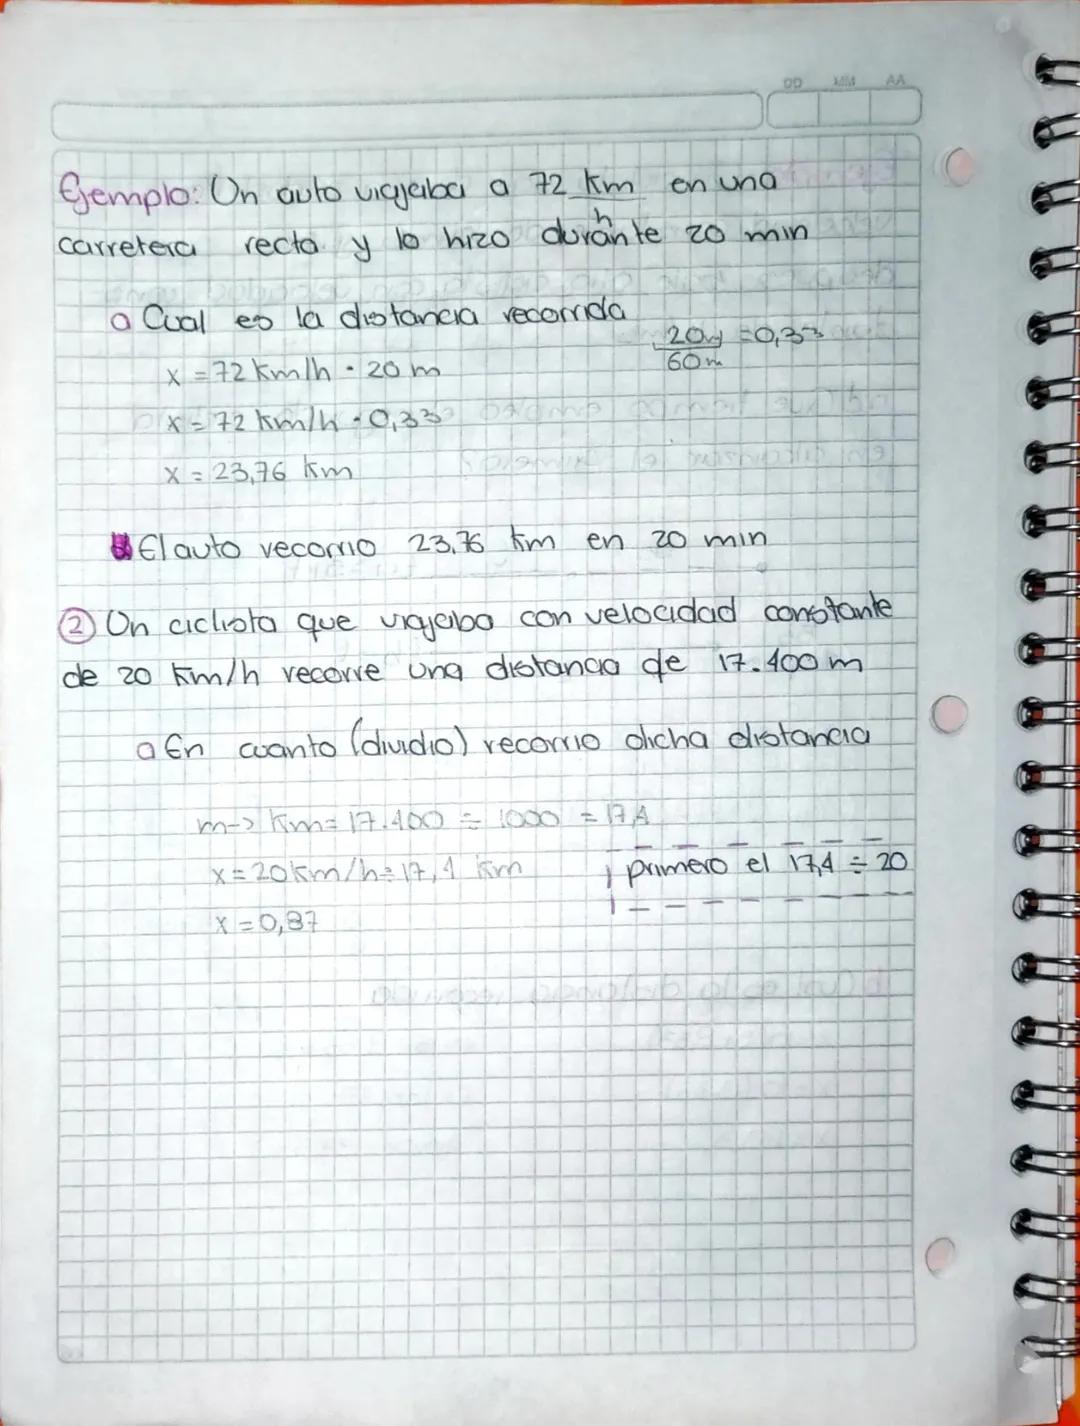 DD MM AA
Ejemplo: Un auto viajaba a 72 km/h en una
carretera recta y lo hizo durante 20 min
a Cual es la distancia recorrida
x = 72 km/h · 20 m
20m/60m = 0,33
x = 72 km/h · 0,33
x = 23,76 km
El auto recorrio 23,76 km en 20 min
2 Un ciclista que viajaba con velocidad constante
de 20 km/h recorre una distancia de 17.400 m
a En cuanto (dividio) recorrio dicha distancia
m-> km = 17.400 ÷ 1000 = 17,4
x = 20 km/h ÷ 17,4 km
primero el 17,4 ÷ 20
x = 0,87